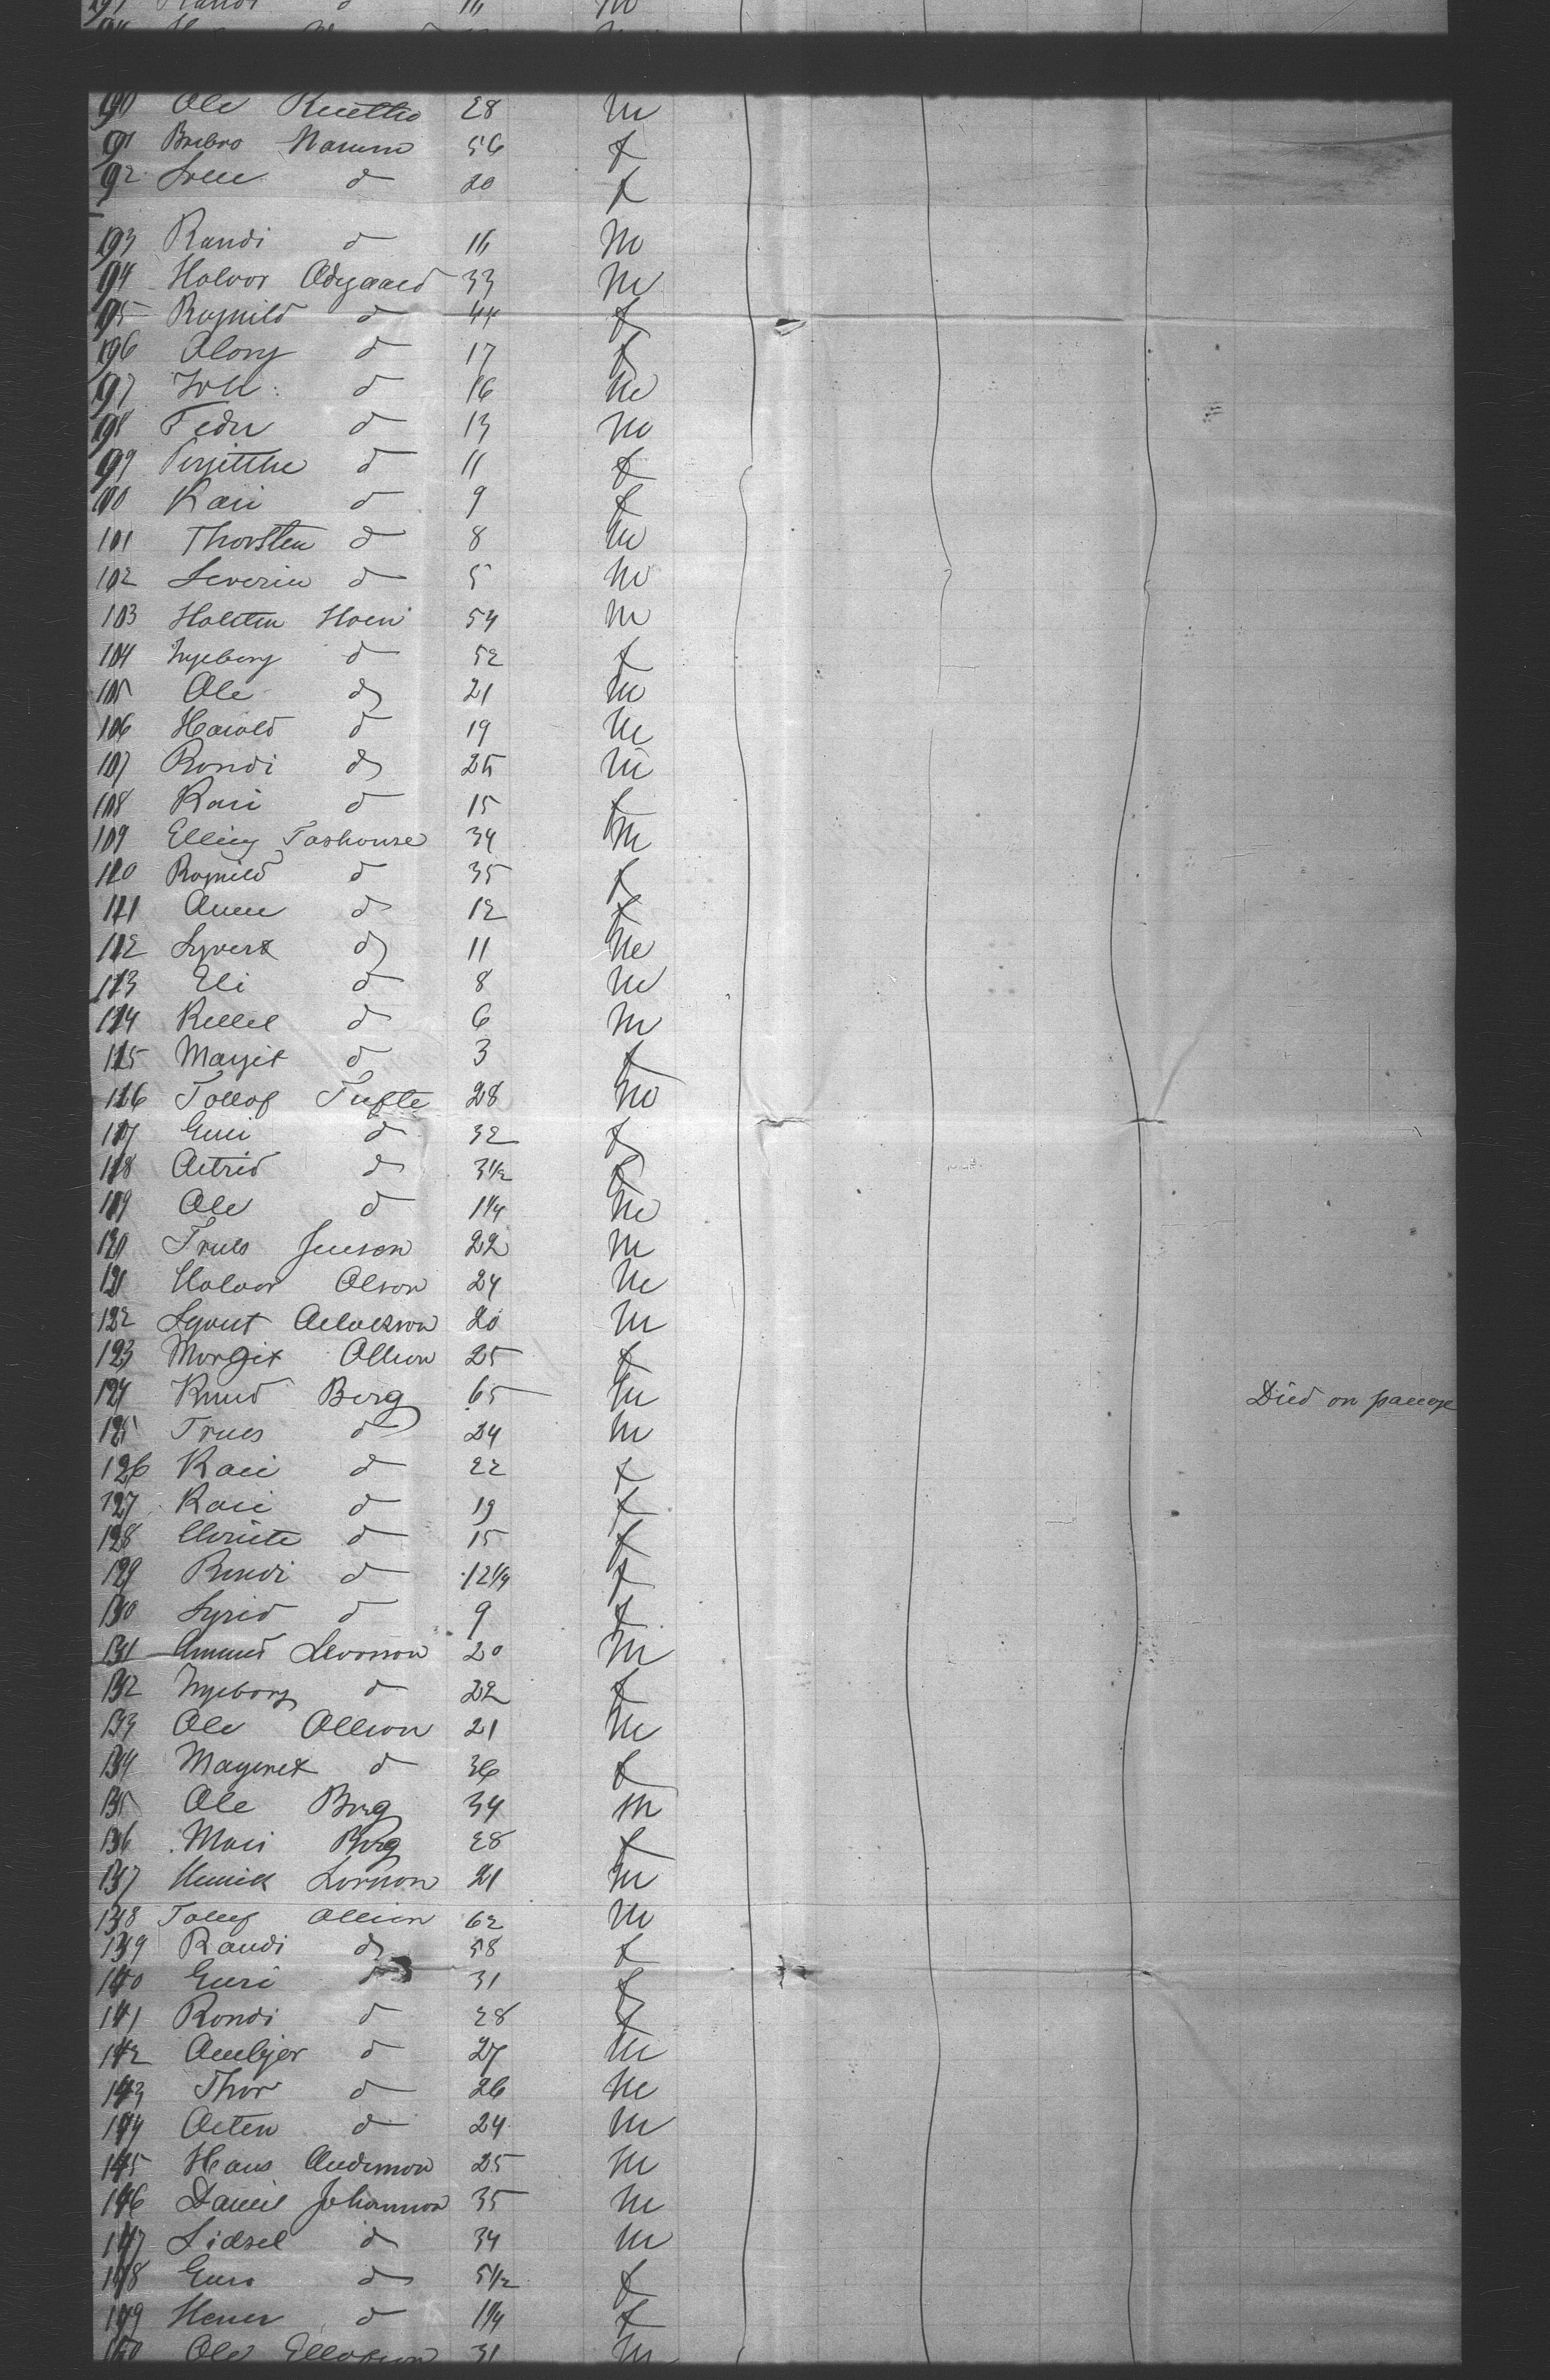 193 Randi d 11
190 Ole Knettio 28 m
191 Barbro Namm 56 f
192 Sven d 20 f
193 Randi d 11 m
194 Halvor Odegaard 33 m
195 Ragnild d 44 f
196 Aloug d 17 f
197 d 16 m
198 Feder d 13 m
199 d 11 f
100 Kari d 9 f
101 Thorsten d 8 m
102 Severin d 5 m
103 Halsten Hoen 54 m
104 Ingeborg d 52 f
105 Ole d 21 m
106 Harald d 19 m
107 Rondi d 25 m
108 Kari d 15 f
109 Elling Tashouse 34 m
110 Ragnild d 35 f
111 Anne d 12 f
112 Syvert d 11 m
113 Eli d 8 m
114 Killel d 6 m
115 Margit d 3 f
116 Tollof Tufte 28 m
117 Guri d 32 f
118 Astrid d 3½ f
119 Ole d 1¼ m
120 Truls Jenson 22 m
121 Halvor Olson 24 m
122 Syvert 20 m
123 Morgit Ollson 25 f
124 Knud Berg 65 m Died on passage
125 Truls d 24 m
126 Kari d 22 f
127 Kari d 19 f
128 d 15 f
129 Rondi d 12¼ f
130 Syrid d 9 f
131 Amund 20 m
132 Ingeborg d 22 f
133 Ole Ollson 21 m
134 Magaret d 36 f
135 Ole Berg 34 m
136 Mari Berg 28 f
137 Larson 21 m
138 Tollef Ollson 62 m
139 Randi d 58 f
140 Guri d 31 f
141 Rondi d 28 f
142 Ambjor d 27 m
143 Thor d 26 m
144 Asten d 24 m
145 Hans Anderson 25 m
146 Daniel Johannson 35 m
147 Sidsel d 34 m
148 Guro d 5½ f
149 d 1¼ f
150 Ole Ellofson 31 m